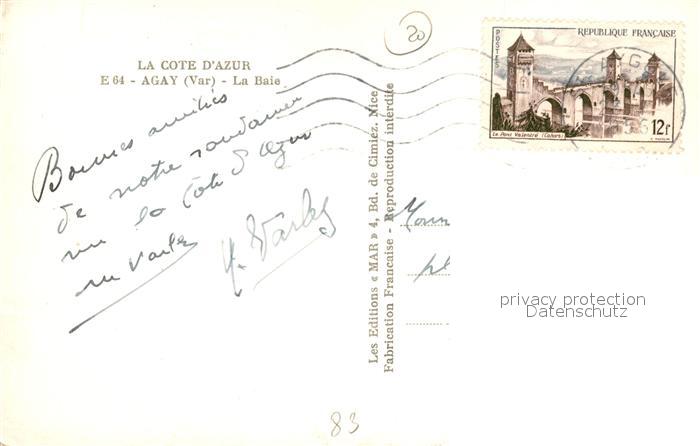 LA COTE D'AZUR
E 64 - AGAY (Var) - La Baie
Bonnes amitiés
de notre randonnée
sur la Côte d'Azur
Les Editions « MAR » 4, Bd. de Cimiez. Nice
Fabrication Française - Reproduction interdite
20
POSTES
REPUBLIQUE FRANÇAISE
Le Pont Valentré (Cahors)
12f
privacy protection
Datenschutz
83